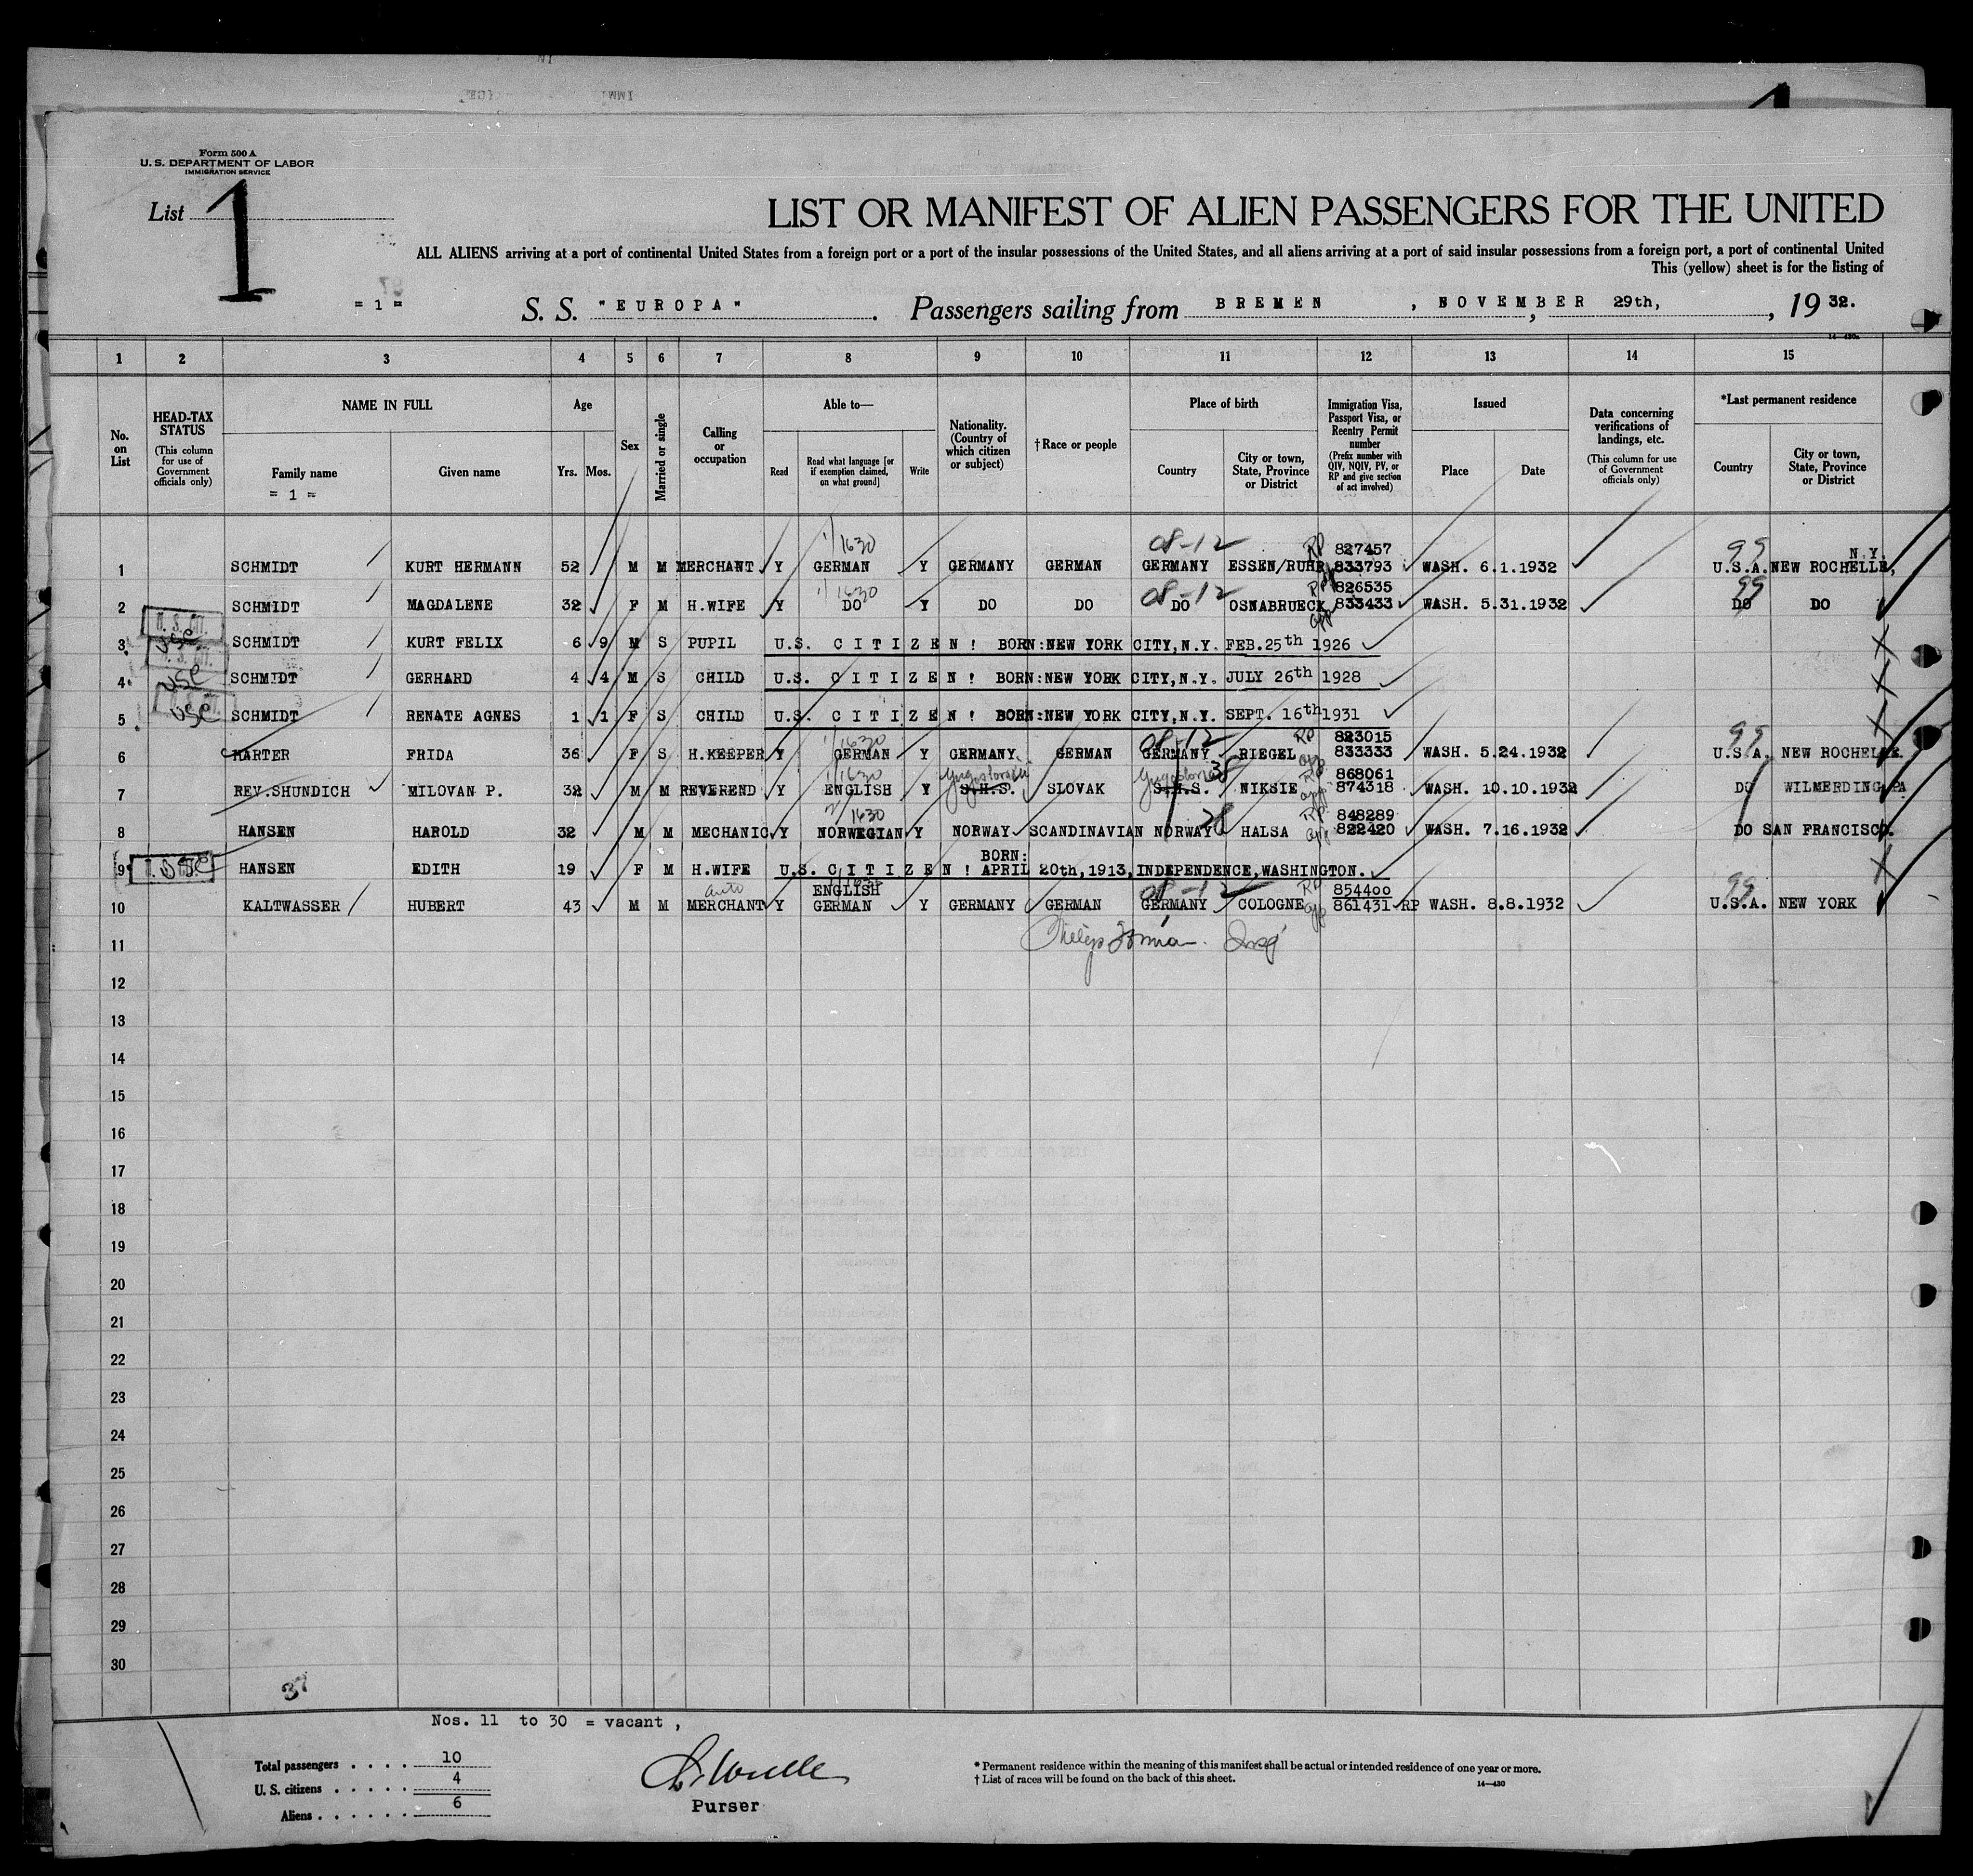 Form 500 A
U. S. DEPARTMENT OF LABOR
IMMIGRATION SERVICE
List 1
LIST OR MANIFEST OF ALIEN PASSENGERS FOR THE UNITED
ALL ALIENS arriving at a port of continental United States from a foreign port or a port of the insular possessions of the United States, and all aliens arriving at a port of said insular possessions from a foreign port, a port of continental United
This (yellow) sheet is for the listing of
= 1 = S. S. "EUROPA". Passengers sailing from BREMEN, NOVEMBER 29th, , 19 32.
14-430a
1 2 3 4 5 6 7 8 9 10 11 12 13 14 15
No. on List
HEAD-TAX STATUS (This column for use of Government officials only)
NAME IN FULL
Family name
= 1 =
Given name
Age
Yrs. Mos.
Sex
Married or single
Calling or occupation
Able to—
Read
Read what language [or if exemption claimed, on what ground]
Write
Nationality. (Country of which citizen or subject)
†Race or people
Place of birth
Country
City or town, State, Province or District
Immigration Visa, Passport Visa, or Reentry Permit number (Prefix number with QIV, NQIV, PV, or RP and give section of act involved)
Issued
Place
Date
Data concerning verifications of landings, etc. (This column for use of Government officials only)
*Last permanent residence
Country
City or town, State, Province or District
1630 08-12 RP 827457 99 N.Y.
1 SCHMIDT KURT HERMANN 52 M M MERCHANT Y GERMAN Y GERMANY GERMAN GERMANY ESSEN/RUHR 833793 WASH. 6.1.1932 U.S.A. NEW ROCHELLE,
1630 08-12 826535 99
2 SCHMIDT MAGDALENE 32 F M H.WIFE Y DO Y DO DO DO OSNABRUECK 833433 WASH. 5.31.1932 DO DO
U. S. CIT.
USC
3 SCHMIDT KURT FELIX 6 9 M S PUPIL U.S. CITIZEN! BORN:NEW YORK CITY,N.Y. FEB.25th 1926
USC
4 SCHMIDT GERHARD 4 4 M S CHILD U.S. CITIZEN! BORN:NEW YORK CITY,N.Y. JULY 26th 1928
USC
5 SCHMIDT RENATE AGNES 1 1 F S CHILD U.S. CITIZEN! BORN:NEW YORK CITY,N.Y. SEPT. 16th 1931
1630 08-12 RP 823015 99
6 HARTER FRIDA 36 F S H.KEEPER Y GERMAN Y GERMANY GERMAN GERMANY RIEGEL 833333 WASH. 5.24.1932 U.S.A. NEW ROCHELLE
1630 Yugoslavia 38 868061
7 REV.SHUNDICH MILOVAN P. 32 M M REVEREND Y ENGLISH Y S.H.S. SLOVAK S.H.S. NIKSIE 874318 WASH. 10.10.1932 DO WILMERDING PA
1630 28 RP 848289
8 HANSEN HAROLD 32 M M MECHANIC Y NORWEGIAN Y NORWAY SCANDINAVIAN NORWAY HALSA 822420 WASH. 7.16.1932 DO SAN FRANCISCO.
BORN:
9 HANSEN EDITH 19 F M H.WIFE U.S. CITIZEN! APRIL 20th,1913,INDEPENDENCE,WASHINGTON.
auto ENGLISH 08-12 RP 854400 99
10 KALTWASSER HUBERT 43 M M MERCHANT Y GERMAN Y GERMANY GERMAN GERMANY COLOGNE 861431 RP WASH. 8.8.1932 U.S.A. NEW YORK
11
12
13
14
15
16
17
18
19
20
21
22
23
24
25
26
27
28
29
30
37
Nos. 11 to 30 = vacant,
Total passengers . . . . 10
U. S. citizens . . . . . 4
Aliens . . . . . . 6
Purser
* Permanent residence within the meaning of this manifest shall be actual or intended residence of one year or more.
† List of races will be found on the back of this sheet.
14-430